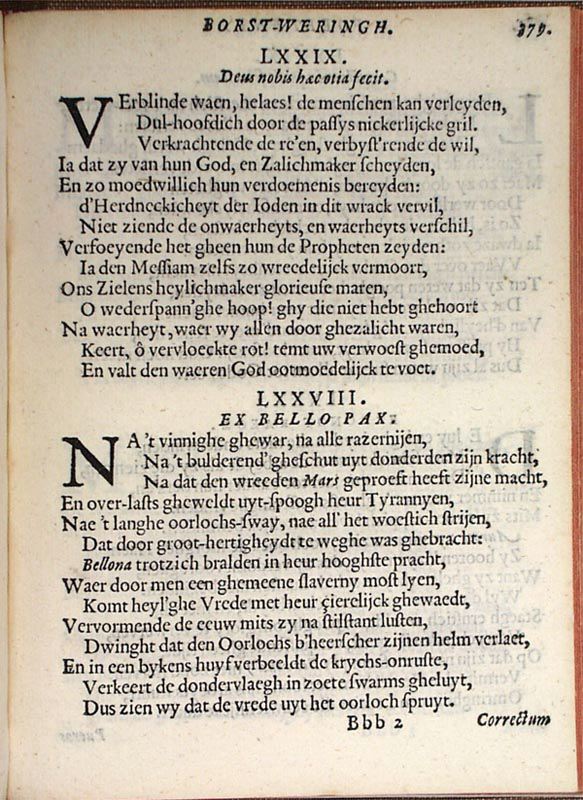 BORST-WERINGH. 379.
LXXIX.
Deus nobis hæc otia fecit.
VErblinde waen, helaes! de menſchen kan verleyden,
Dul-hoofdich door de paſſys nickerlijcke gril.
Verkrachtende de re'en, verbyſt'rende de wil,
Ia dat zy van hun God, en Zalichmaker ſcheyden,
En zo moedwillich hun verdoemenis bereyden:
d'Herdneckicheyt der Ioden in dit wrack vervil,
Niet ziende de onwaerheyts, en waerheyts verſchil,
Verfoeyende het gheen hun de Propheten zeyden:
Ia den Meſſiam zelfs zo wreedelijck vermoort,
Ons Zielens heylichmaker glorieuſe maren,
O wederſpann'ghe hoop! ghy die niet hebt ghehoort
Na waerheyt, waer wy allen door ghezalicht waren,
Keert, ô vervloeckte rot! temt uw verwoeſt ghemoed,
En valt den waeren God ootmoedelijck te voet.
LXXVIII.
EX BELLO PAX.
NA 't vinnighe ghewar, na alle razernijen,
Na 't bulderend' gheſchut uyt donderden zijn kracht,
Na dat den wreeden Mars geproeft heeft zijne macht,
En over-laſts gheweldt uyt-ſpoogh heur Tyrannyen,
Nae 't langhe oorlochs-ſway, nae all' het woeſtich ſtrijen,
Dat door groot-hertigheydt te weghe was ghebracht:
Bellona trotzich bralden in heur hooghſte pracht,
Waer door men een ghemeene ſlaverny moſt lyen,
Komt heyl'ghe Vrede met heur çierelijck ghewaedt,
Vervormende de eeuw mits zy na ſtilſtant luſten,
Dwinght dat den Oorlochs b'heerſcher zijnen helm verlaet,
En in een bykens huyf verbeeldt de krychs-onruſte,
Verkeert de dondervlaegh in zoete ſwarms gheluyt,
Dus zien wy dat de vrede uyt het oorloch ſpruyt.
Bbb 2 Correctum